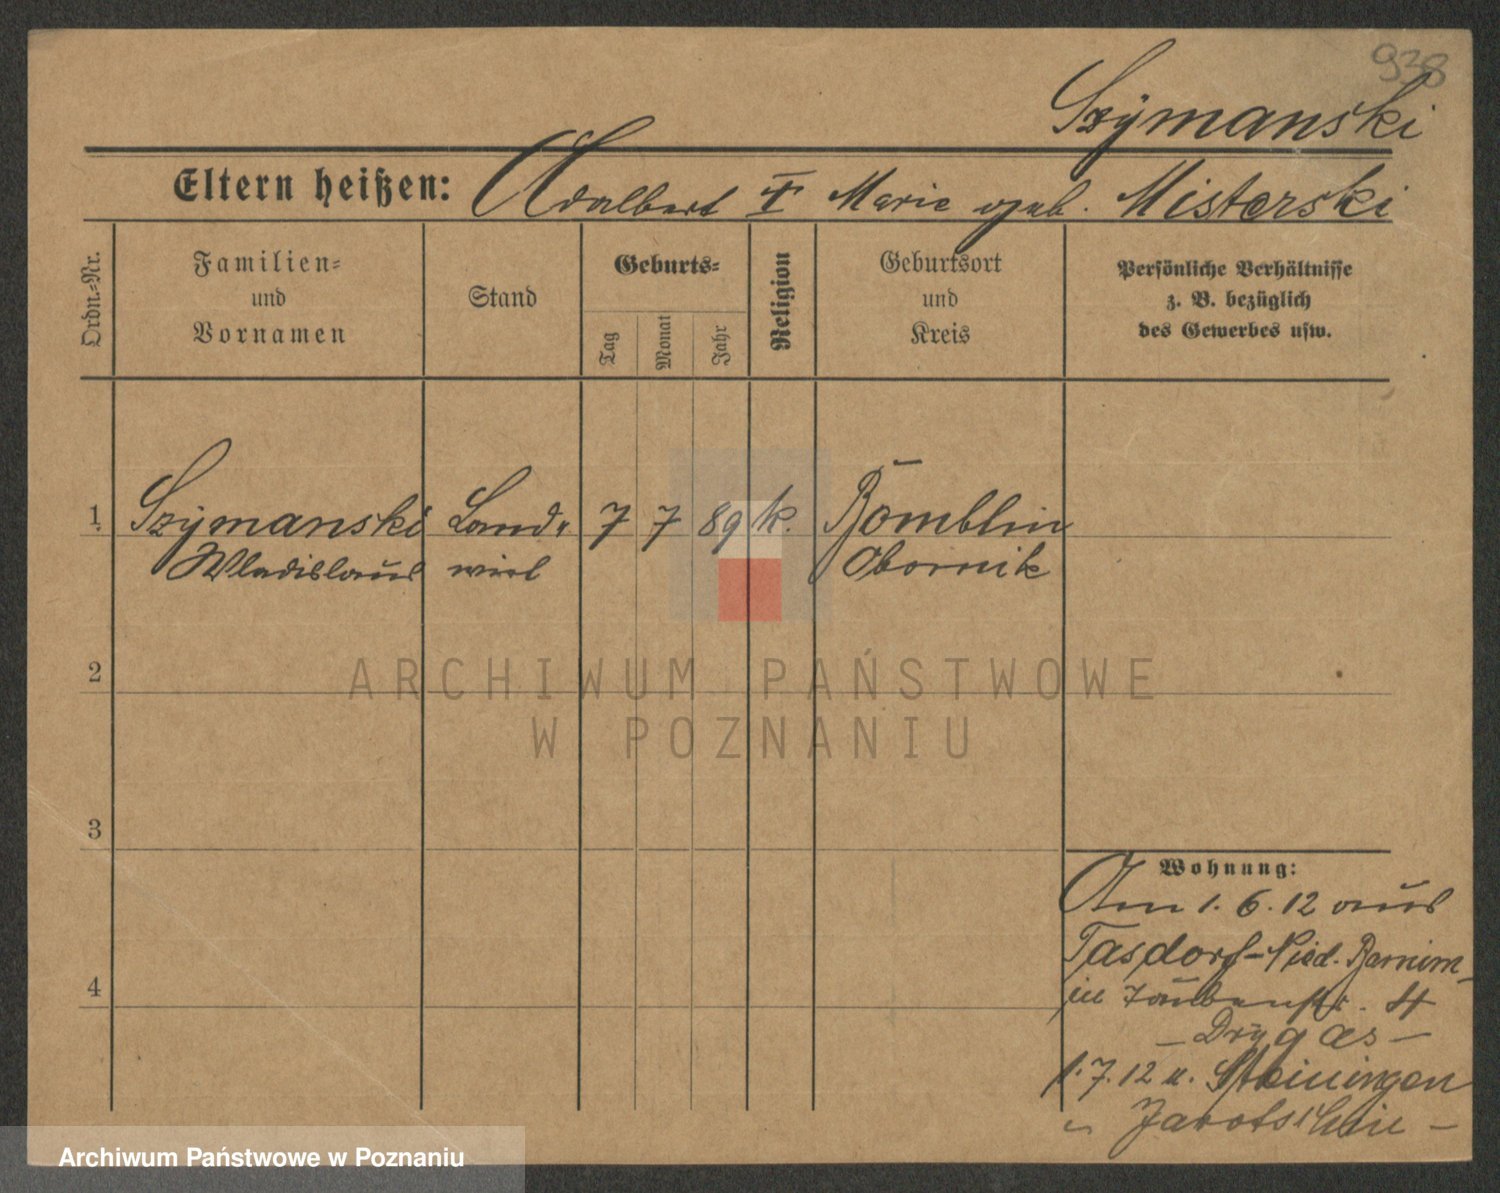 938
Szymanski
Eltern heißen: Adalbert u. Marie geb. Misterski
Ordn.=Nr.
Familien=
und
Vornamen
Stand
Geburts=
Tag
Monat
Jahr
Religion
Geburtsort
und
Kreis
Persönliche Verhältnisse
z. B. bezüglich
des Gewerbes usw.
1 Szymanski Land= 7 7 89 k. Bomblin
Wladislaus wirt Obornik
2
3
4
Wohnung:
Am 1.6.12 aus
Tasdorf-Nied. Barnim
in Taubenstr. 4
- Drygas -
1.7.12 n.
- Jarotschin -
ARCHIWUM PAŃSTWOWE
W POZNANIU
Archiwum Państwowe w Poznaniu